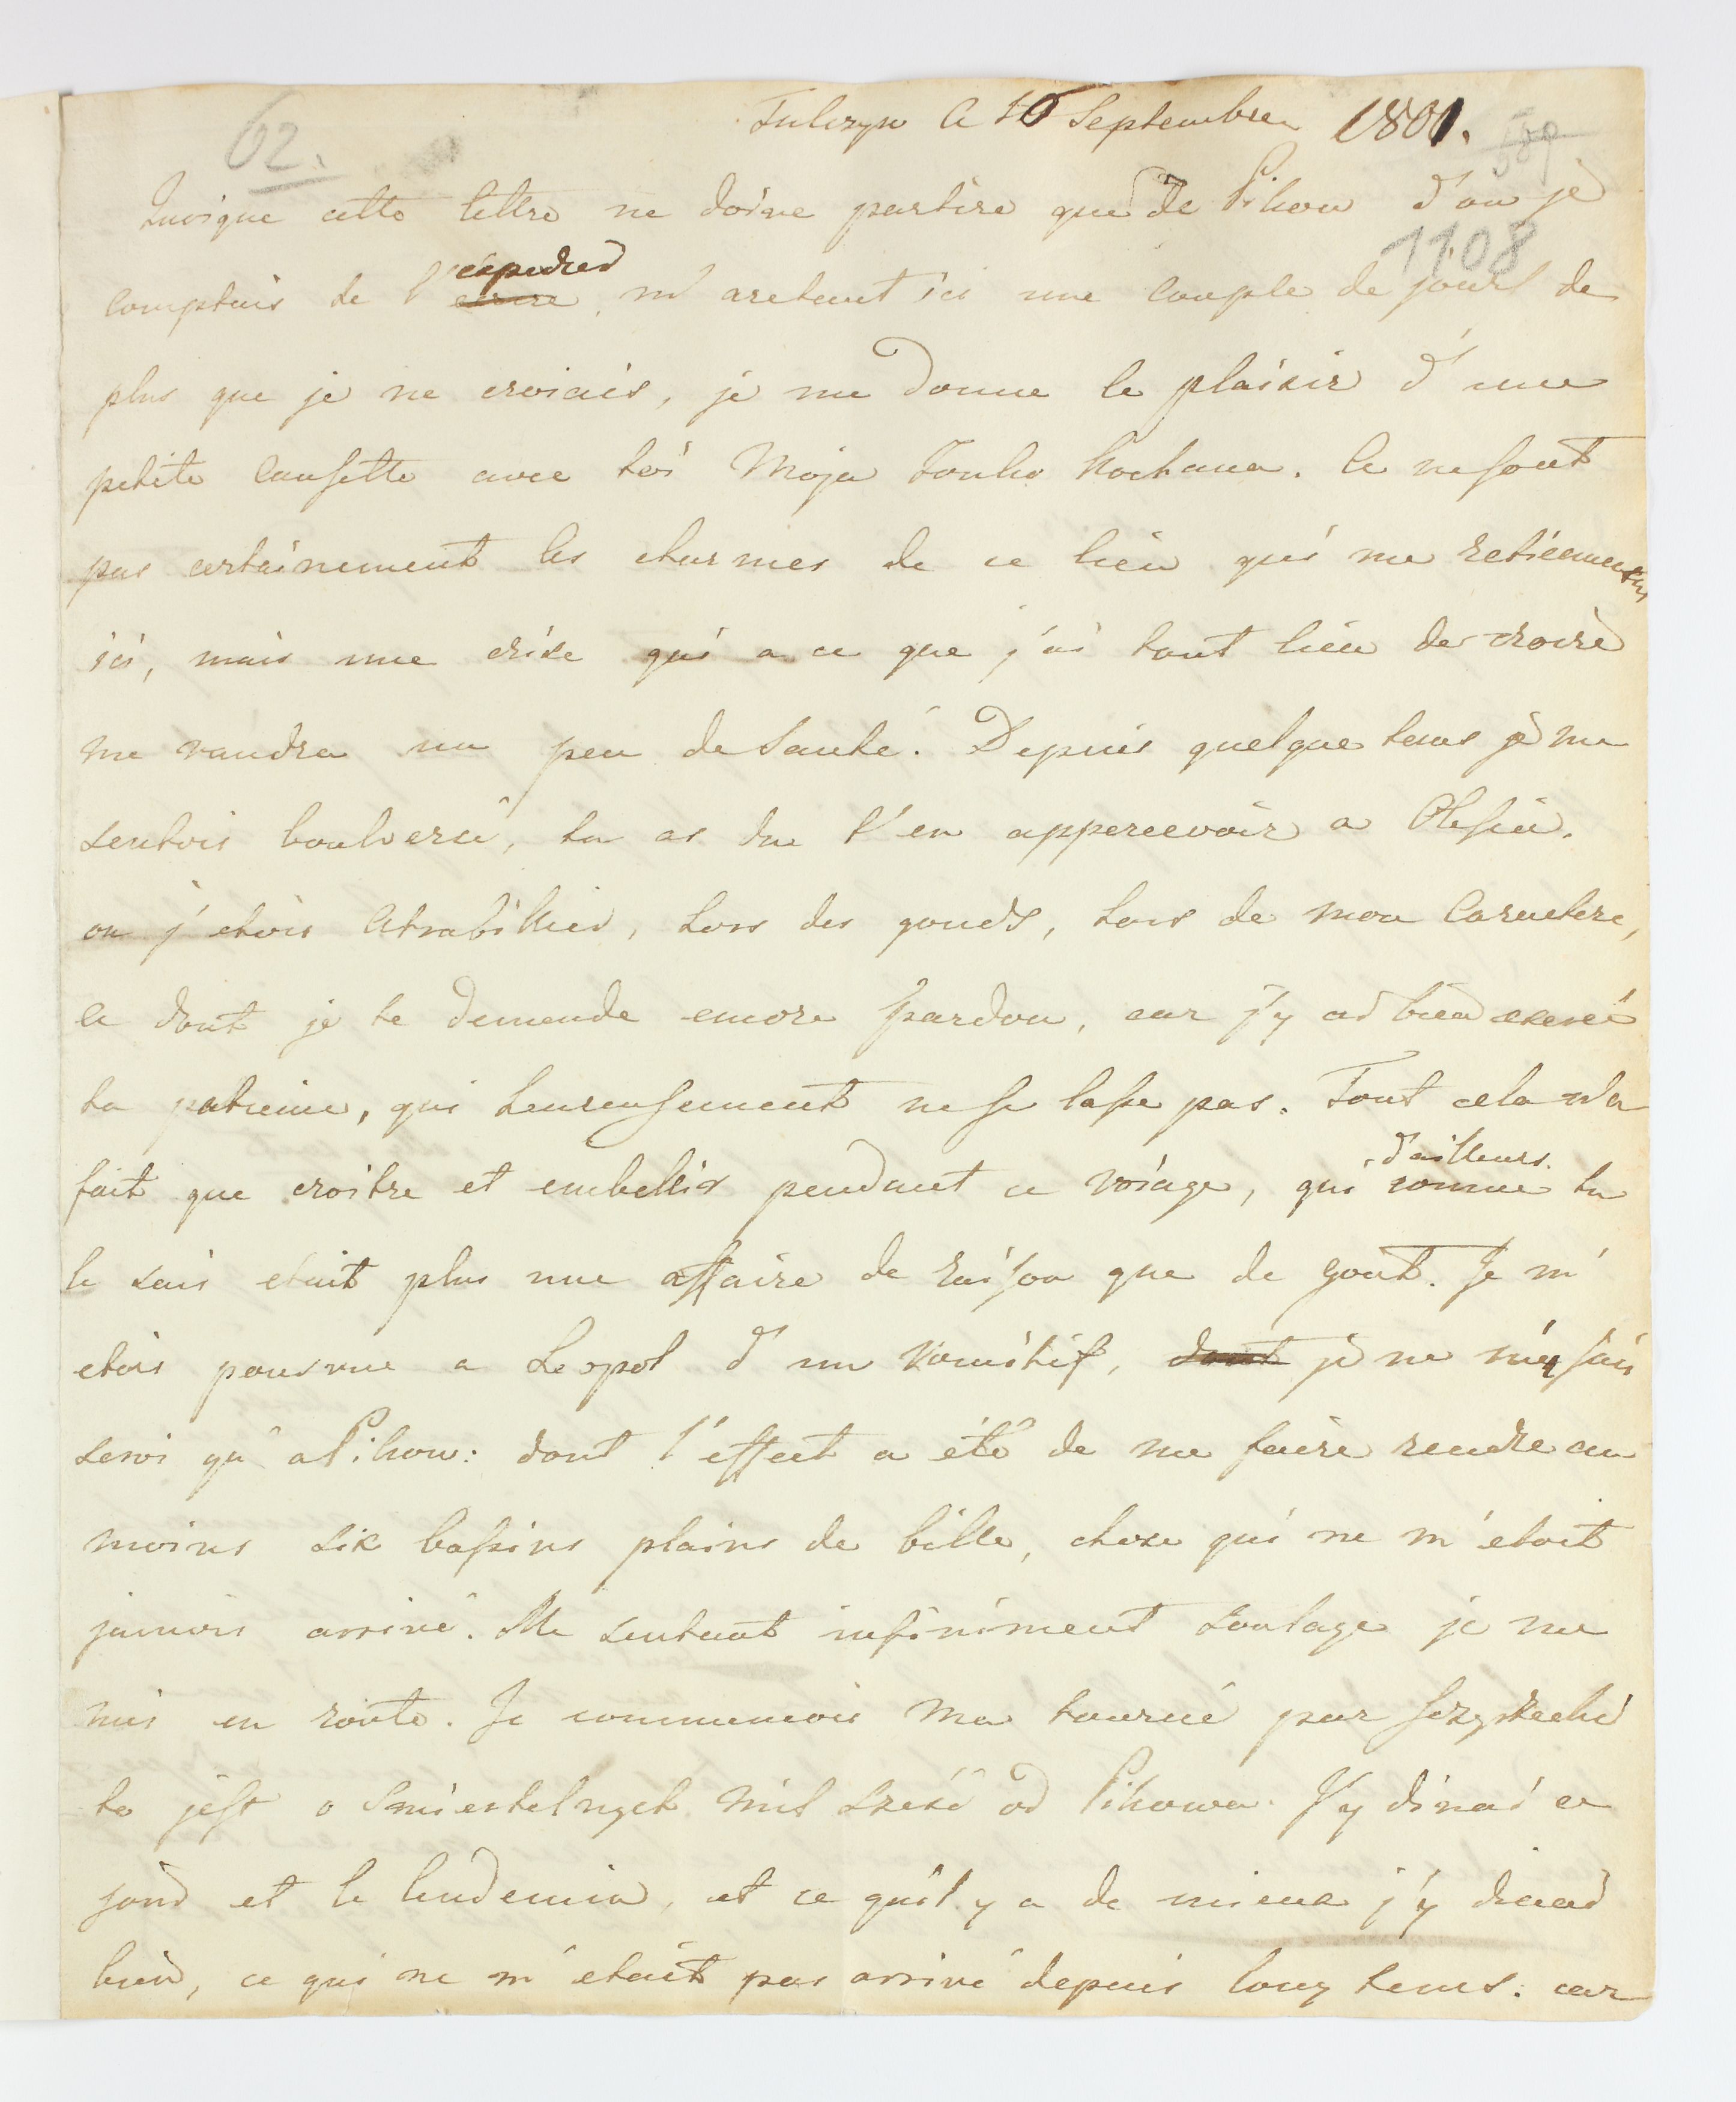 62.
Tulczyn le 10 Septembre 1801.
509
Quoique cette lettre ne doive partire que de Pikow d'ou je
1108
comptais te l'ecrire expedier, m'aretant ici une couple de jours de
plus que je ne croiais, je me donne le plaisir d'une
petite causette avec toi Moja Tonko Kochana. Ce ne sont
pas certainement les charmes de ce lieu qui me retiennent
ici, mais une crise qui a ce que j'ai tout lieu de croire
me randra un peu de santé. Depuis quelque tems je me
sentois boulversé, tu as du t'en appercevoir a Olesin.
ou j'etois Atrabillier, hors des gonds, hors de mon Caractere,
ce dont je te demende encore pardon, car j'y ai bien exercé
ta patience, qui heureusement ne se lasse pas. Tout cela n'a
fait que croitre et embellir pendant ce voiage, qui d'ailleurs comme tu
le sais etait plus une affaire de raison que de gout. Je m'
etois pourvue a Leopol d'un vomitif, dont je ne m'en suis
servi qu'a Pikow: dont l'effect a été de me faire rendre au
moins six bassins plains de bille, chose qui ne m'etoit
jamois arrivé. Me sentant infiniment soulage je me
mis en route. Je commencois ma tourné par
to jest o Smiertelnych mil sześć od Pikowa. J'y dinai ce
jour et le lendemin, et ce qu'il y a de mieux j'y dinai
bien, ce qui ne m'etait pas arrivé depuis long tems: car